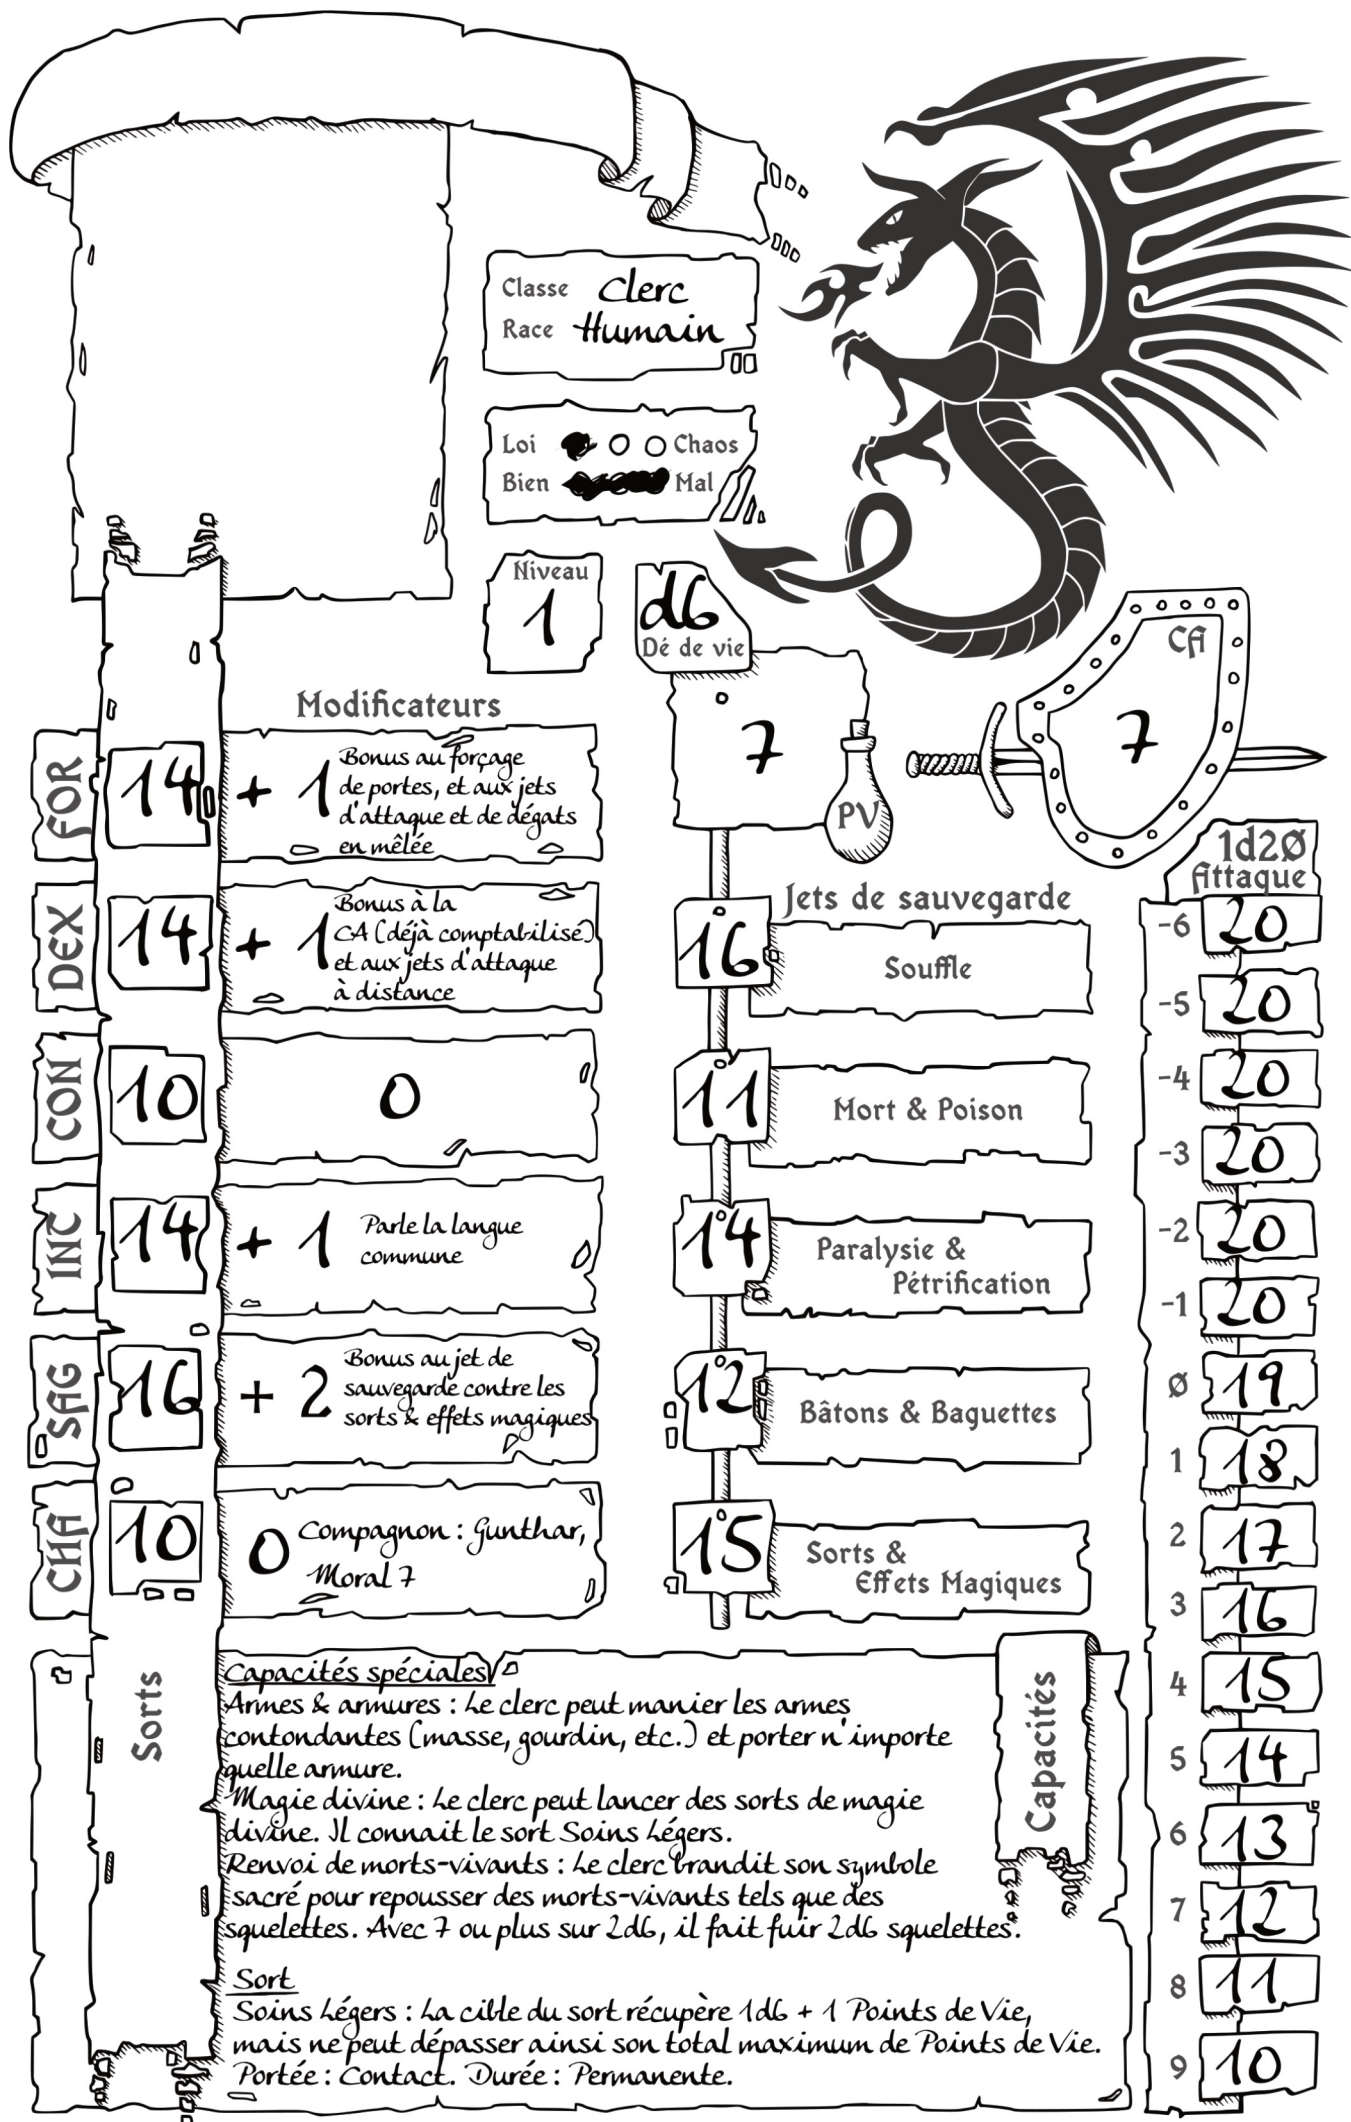 Classe Clerc
Race Humain
Loi Chaos
Bien Mal
Niveau
1
d6
Dé de vie
7
PV
CA
7
Modificateurs
FOR
14
+ 1
Bonus au forçage
de portes, et aux jets
d'attaque et de dégats
en mêlée
DEX
14
+ 1
Bonus à la
CA (déjà comptabilisé)
et aux jets d'attaque
à distance
CON
10
0
INT
14
+ 1
Parle la langue
commune
SAG
16
+ 2
Bonus au jet de
sauvegarde contre les
sorts & effets magiques
CHA
10
0
Compagnon : Gunthar,
Moral 7
Jets de sauvegarde
16
Souffle
11
Mort & Poison
14
Paralysie &
Pétrification
12
Bâtons & Baguettes
15
Sorts &
Effets Magiques
1d20
Attaque
-6 20
-5 20
-4 20
-3 20
-2 20
-1 20
0 19
1 18
2 17
3 16
4 15
5 14
6 13
7 12
8 11
9 10
Sorts
Capacités
Capacités spéciales
Armes & armures : Le clerc peut manier les armes
contondantes (masse, gourdin, etc.) et porter n'importe
quelle armure.
Magie divine : Le clerc peut lancer des sorts de magie
divine. Il connait le sort Soins Légers.
Renvoi de morts-vivants : Le clerc brandit son symbole
sacré pour repousser des morts-vivants tels que des
squelettes. Avec 7 ou plus sur 2d6, il fait fuir 2d6 squelettes.
Sort
Soins Légers : La cible du sort récupère 1d6 + 1 Points de Vie,
mais ne peut dépasser ainsi son total maximum de Points de Vie.
Portée : Contact. Durée : Permanente.